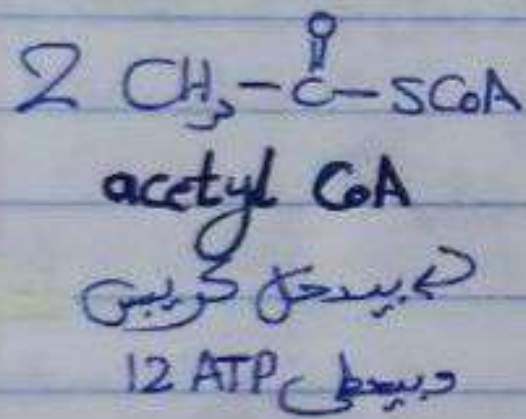 O
2 CH₃-C-SCoA
acetyl CoA
بيدخل كريبس
وبيعطي 12 ATP